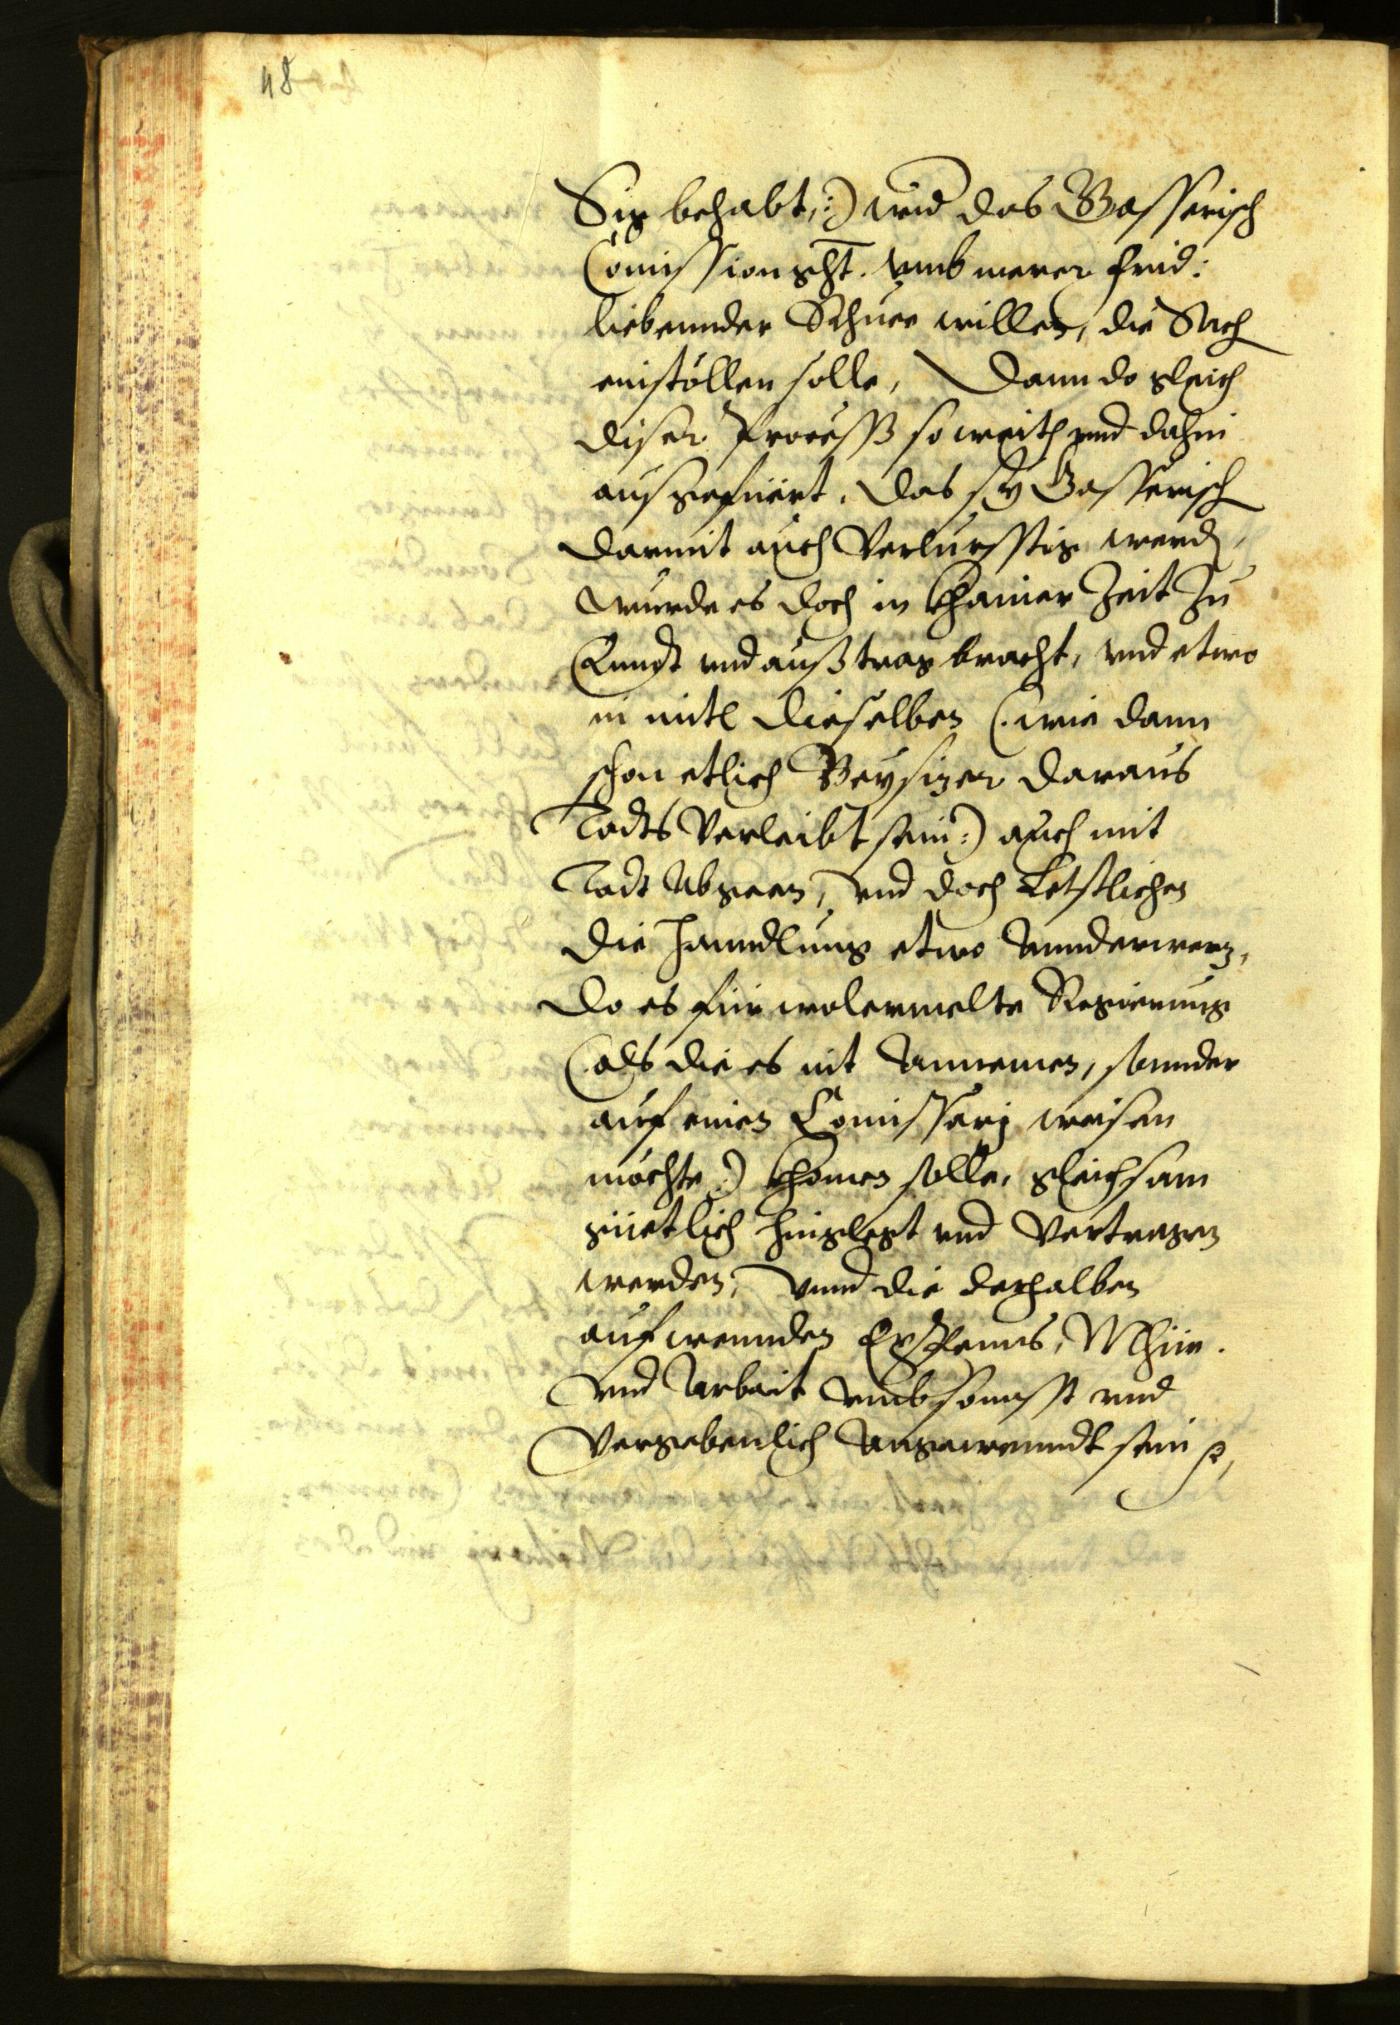 48
Sig behabt,:) wid das Gasserisch
Comissionght. umb merer frid:
liebennder Rhue willen, die Sach
einstöllen solle, Dann do gleich
diser Process so weith und dahin
ausgefüert, das sy Gasserisch
darmit auch verlursstig werd,
wurde es doch in khainer Zeit zu
Enndt und außtrag bracht, und etwo
in mitl dieselben (: wie dann
schon etlich Beysizer daraus
Todts verleibt sein :) auch mit
Todt abgeen, und doch letstlichen
die Hanndlung etwo annderwerz,
do es für wolermelte Regierung
(: als die es nit annemen, sonnder
auf einen Comissarj weisen
möchte :) khomen solle, gleichsam
güetlich hinglegt und vertragen
werden, unnd die derhalben
aufwennden Expenns, Mhüe.
und Arbait umbsonsst und
vergebenlich angewenndt sein